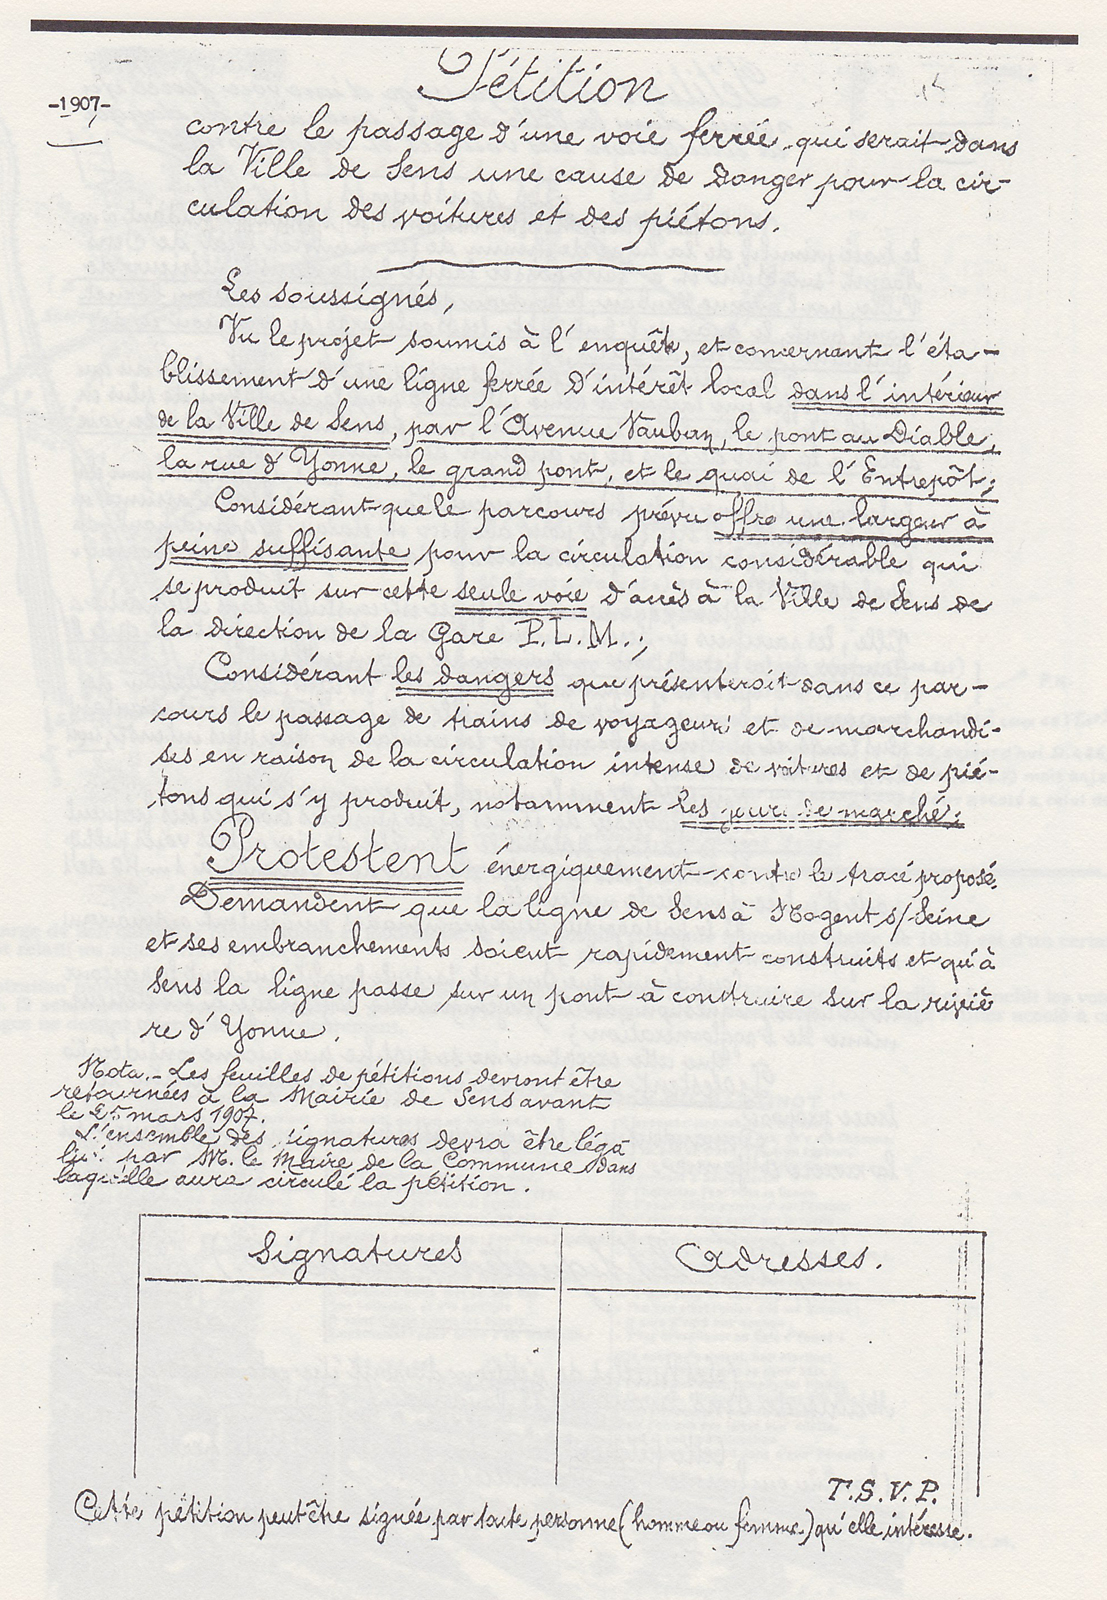 Pétition
-1907-
contre le passage d'une voie ferrée qui serait dans
la Ville de Sens une cause de danger pour la cir-
culation des voitures et des piétons.
Les soussignés,
Vu le projet soumis à l'enquête, et concernant l'éta-
blissement d'une ligne ferrée d'intérêt local dans l'intérieur
de la Ville de Sens, par l'Avenue Vauban, le pont au Diable,
la rue d'Yonne, le grand pont, et le quai de l'Entrepôt;
Considérant que le parcours prévu offre une largeur à
peine suffisante pour la circulation considérable qui
se produit sur cette seule voie d'accès à la Ville de Sens de
la direction de la Gare P.L.M.;
Considérant les dangers que présenterait dans ce par-
cours le passage de trains de voyageurs et de marchandi-
ses en raison de la circulation intense de voitures et de pié-
tons qui s'y produit, notamment les jours de marché;
Protestent énergiquement contre le tracé proposé.
Demandent que la ligne de Sens à Nogent s/Seine
et ses embranchements soient rapidement construits et qu'à
Sens la ligne passe sur un pont à construire sur la riviè
re d'Yonne.
Nota.- Les feuilles de pétitions devront être
retournées à la Mairie de Sens avant
le 25 mars 1907.
L'ensemble des signatures devra être léga
lisé par M. le Maire de la Commune dans
laquelle aura circulé la pétition.
Signatures
Adresses.
T.S.V.P.
Cette pétition peut être signée par toute personne (homme ou femme) qu'elle intéresse.